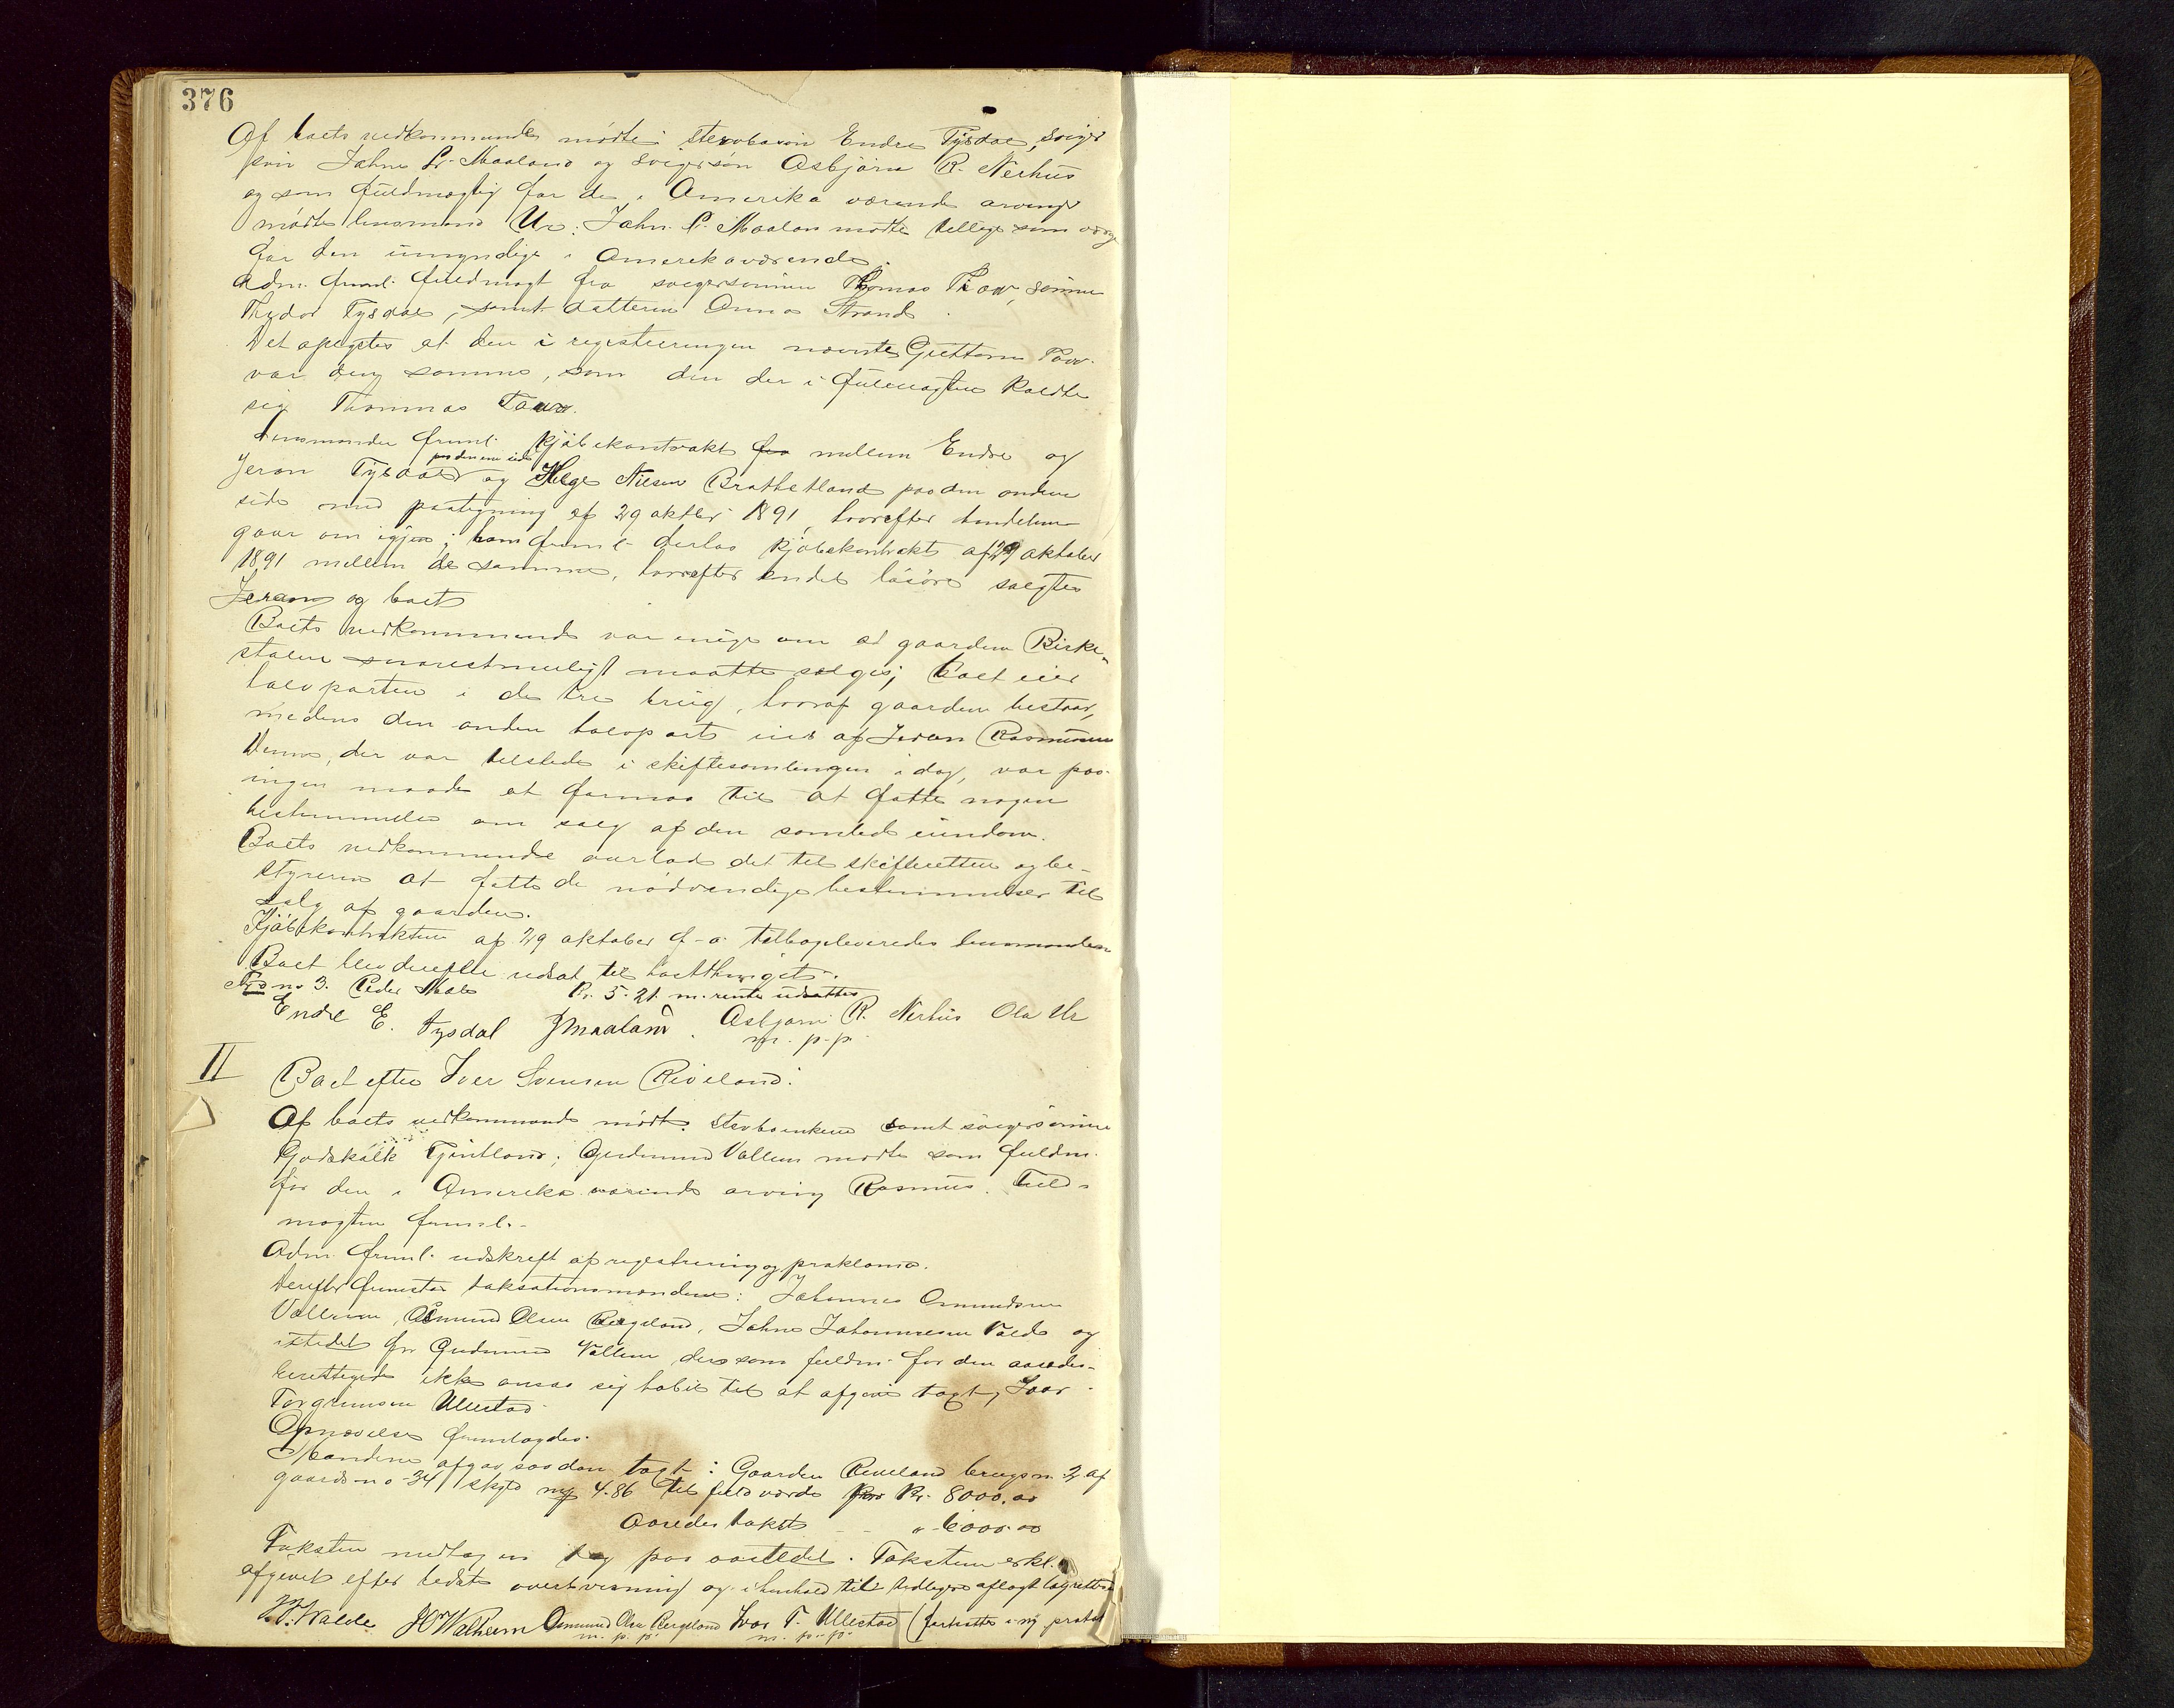 376
Af boets vedkommende mødte stervbosøn Endre Tysdal, sviger
søn John P. Maaland og svigersøn Asbjørn R. Nerhus
og som fuldmægtig for de i Amerika værende arvinger
mødte lensmand Ur: John P. Maalan mødte tillige som værge
for den umyndige i Amerika værende.
Adm. freml. fuldmagt fra svigersønnen Thomas Tiaw, sønnen
Thedor Tysdal, samt datteren Anna Strand.
Det oplystes at den i registreringen nævnte Guttorm Tow
var den samme, som den der i fuldmagten kaldte
sig Thommas Taw.
Lensmanden freml. kjøbekontrakt fra mellem Endre og
paa den ene side
Jeron Tysdal og Helge Nilsen Bratthetland paa den anden
side med paategning af 29 oktbr 1891, hvorefter handelen
gaar om igjen; han freml. derhos kjøbekontrakt af 29 oktober
1891 mellem de samme, hvorefter endel løsøre solgtes
Jeron og boet
Boets vedkommende var enige om at gaarden Birke-
stølen snarestmuligt maatte sælges; boet eier
halvparten i de tre brug, hvoraf gaarden bestaar,
medens den anden halvpart eies af Jeron Rasmussen
Denne, der var tilstede i skiftesamlingen i dag, var paa
ingen maade at formaa til at fatte nogen
bestemmelse om salg af den samlede eiendom.
Boets vedkommende overlod det til skifteretten og be-
styreren at fatte de nødvendige bestemmelser til
salg af gaarden.
Kjøbekontrakten af 29 oktober f. a. tilbageleveredes lensmanden
Boet blev derefter udsat til
no 3. Peder Kr. 5.21 m. renter udsattes
Endre E. Tysdal JMaaland. Asbjørn R. Nerhus Ola Ur
m. p. p.
II
Boet efter Iver Svensen Riveland:
Af boets vedkommende mødte stervboenken samt svigersønnen
Godskalk Tjentland; Gudmund Vallem mødte som fuldm.
for den i Amerika værende arving Rasmus. Fuld-
magten freml.-
Adm. freml. udskrift af registrering og proklama.
Derefter fremstod taksationsmændene: Johannes Omundsen
Vallem, Osmund Olsen Bergeland, John Johannesen Valde og
istedet for Gudmund Vallem der som fuldm. for den aasædes-
berettigede ikke ansaa sig habil til at afgive taxt, Ivar
Torgrimsen Ullestad.
Opnævelse fremlagdes.
Mændene afgav saadan taxt: Gaarden Reveland brugsn. 2 af
gaardsno 34 skyld ny 4.86 til fuld værdi for Kr. 8000.00
Aasædes takst - - " 6000.00
Taksten erkl.
afgivet efter bedste overbevisning og i henhold til tidligere aflagt lagretted
J. J. Walde JO Walheim Osmund Olsen Bergeland Ivar T. Ullestad (fortsættes i ny protol
m. p. p. m. p. p.